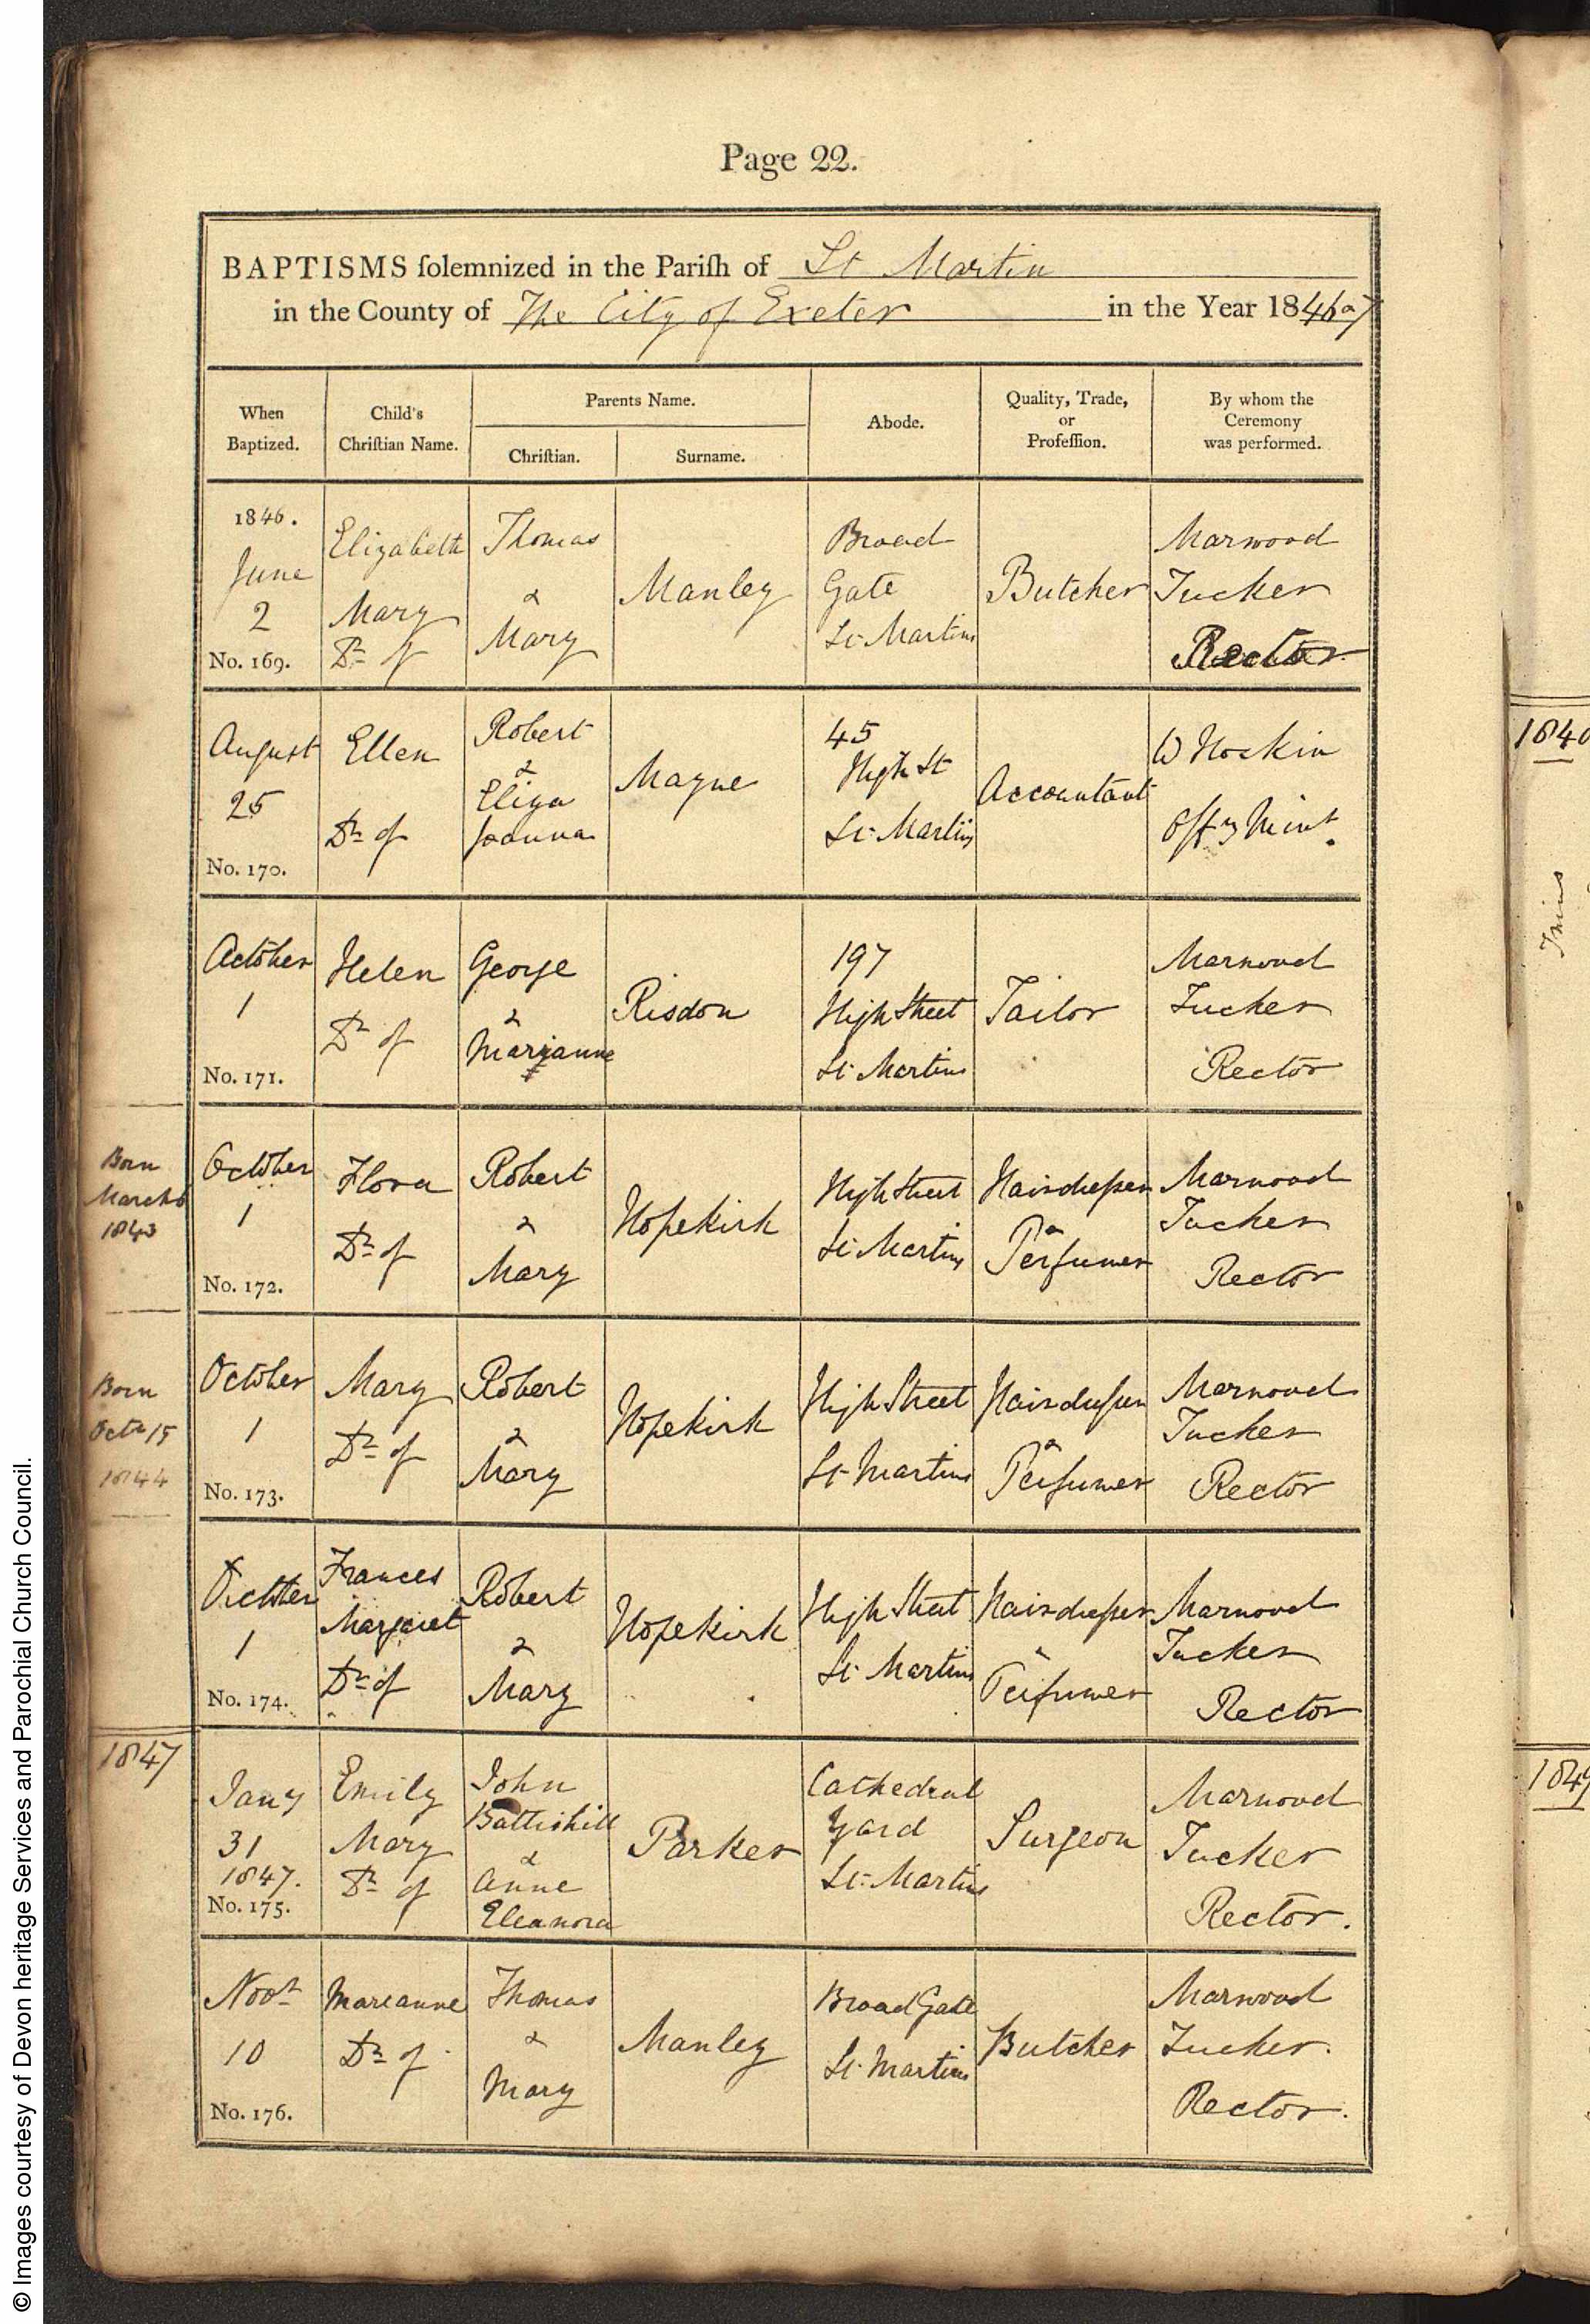 Page 22.
BAPTISMS ſolemnized in the Pariſh of St Martin
in the County of The City of Exeter in the Year 1846 & 7
When
Baptized.
Child's
Chriſtian Name.
Parents Name.
Chriſtian.
Surname.
Abode.
Quality, Trade,
or
Profeſſion.
By whom the
Ceremony
was performed.
1846.
June
2
No. 169.
Elizabeth
Mary
Dr of
Thomas
&
Mary
Manley
Broad
Gate
St Martins
Butcher
Marwood
Tucker
Rector
August
25
No. 170.
Ellen
Dr of
Robert
&
Eliza
Joanna
Mayne
45
High St
St Martins
Accountant
W Hockin
Offg Mint.
October
1
No. 171.
Helen
Dr of
George
&
Marianne
Risdon
197
High Street
St Martins
Tailor
Marwood
Tucker
Rector
Born
March 6
1843
October
1
No. 172.
Flora
Dr of
Robert
&
Mary
Hopekirk
High Street
St Martins
Hairdresser
&
Perfumer
Marwood
Tucker
Rector
Born
Octr 15
1844
October
1
No. 173.
Mary
Dr of
Robert
&
Mary
Hopekirk
High Street
St Martins
Hairdresser
&
Perfumer
Marwood
Tucker
Rector
October
1
No. 174.
Frances
Margaret
Dr of
Robert
&
Mary
Hopekirk
High Street
St Martins
Hairdresser
&
Perfumer
Marwood
Tucker
Rector
1847
Jany
31
1847.
No. 175.
Emily
Mary
Dr of
John
Battishill
&
Anne
Eleanora
Parker
Cathedral
Yard
St Martins
Surgeon
Marwood
Tucker
Rector.
Novr
10
No. 176.
Mareanne
Dr of
Thomas
&
Mary
Manley
Broad Gate
St Martins
Butcher
Marwood
Tucker.
Rector.
© Images courtesy of Devon heritage Services and Parochial Church Council.